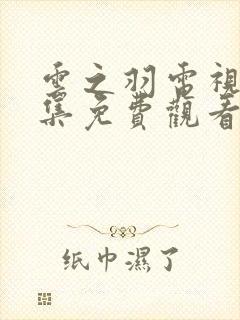 雲之羽電視
集免費觀看
纸巾濕了